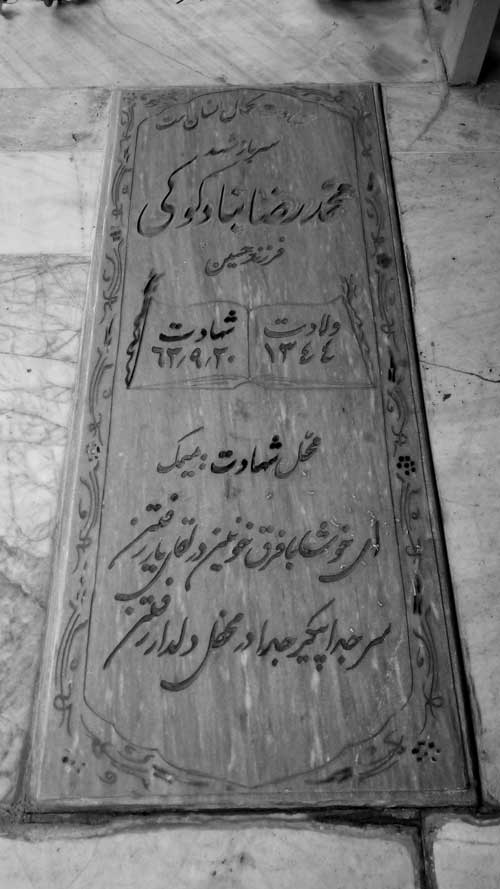 شهادت کمال انسان است
سرباز شهید
محمدرضا بناد کوکی
فرزند حسین
ولادت
۱۳٤٤
شهادت
٦٢٫٩٫٢٠
محل شهادت: میمک
ای خوشا با فرق خونین در لقای یار رفتن
سر جدا پیکر جدا در محفل دلدار رفتن